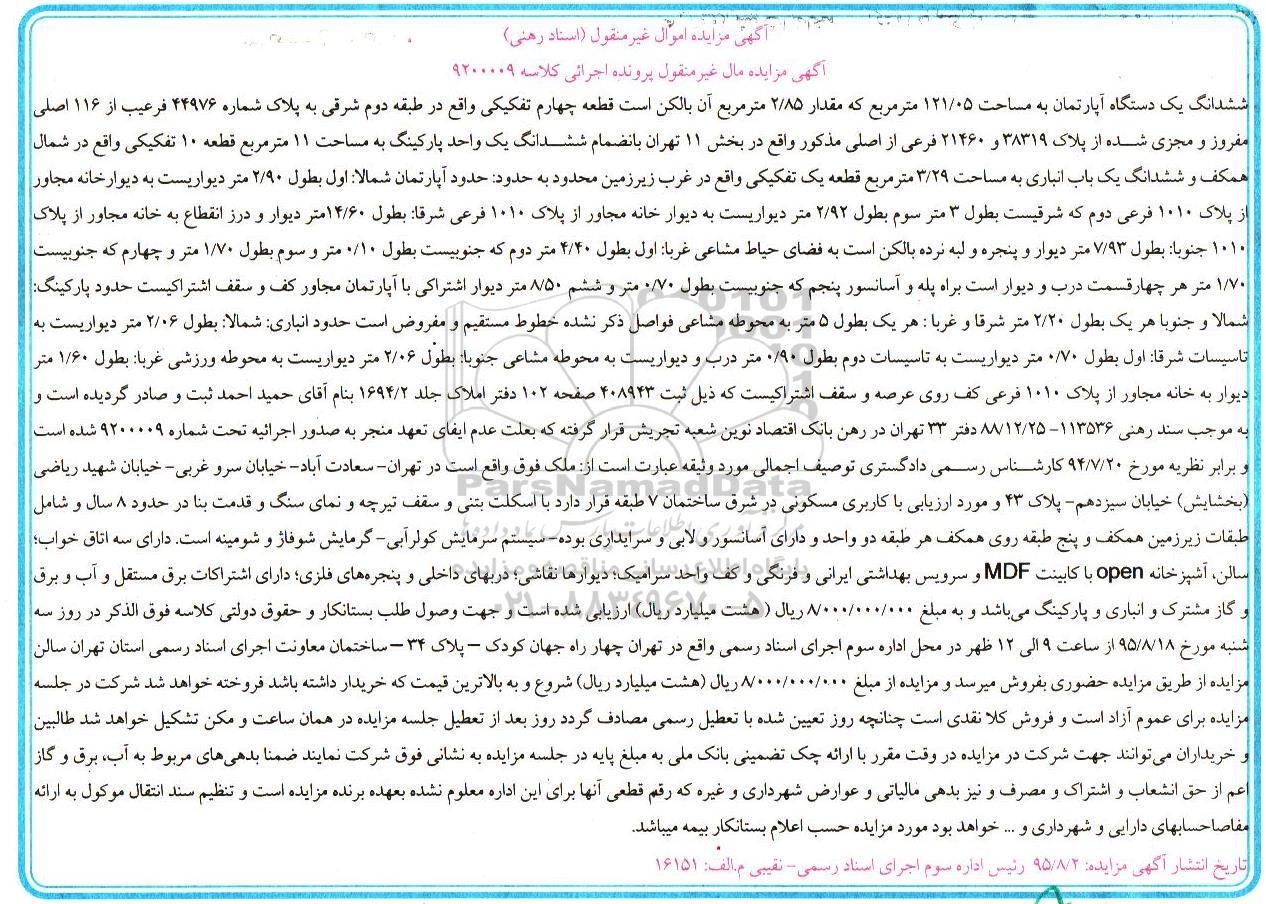 آگهی مزایده اموال غیرمنقول (اسناد رهنی)
آگهی مزایده مال غیرمنقول پرونده اجرائی کلاسه ۹۲۰۰۰۰۹
ششدانگ یک دستگاه آپارتمان به مساحت ۱۲۱/۰۵ مترمربع که مقدار ۲/۸۵ مترمربع آن بالکن است قطعه چهارم تفکیکی واقع در طبقه دوم شرقی به پلاک شماره ۴۴۹۷۶ فرعیب از ۱۱۶ اصلی
مفروز و مجزی شده از پلاک ۳۸۳۱۹ و ۲۱۴۶۰ فرعی از اصلی مذکور واقع در بخش ۱۱ تهران بانضمام ششدانگ یک واحد پارکینگ به مساحت ۱۱ مترمربع قطعه ۱۰ تفکیکی واقع در شمال
همکف و ششدانگ یک باب انباری به مساحت ۳/۲۹ مترمربع قطعه یک تفکیکی واقع در غرب زیرزمین محدود به حدود: حدود آپارتمان شمالا: اول بطول ۲/۹۰ متر دیواریست به دیوارخانه مجاور
از پلاک ۱۰۱۰ فرعی دوم که شرقیست بطول ۳ متر سوم بطول ۲/۹۲ متر دیواریست به دیوار خانه مجاور از پلاک ۱۰۱۰ فرعی شرقا: بطول ۱۴/۶۰متر دیوار و درز انقطاع به خانه مجاور از پلاک
۱۰۱۰ جنوبا: بطول ۷/۹۳ متر دیوار و پنجره و لبه نرده بالکن است به فضای حیاط مشاعی غربا: اول بطول ۴/۴۰ متر دوم که جنوبیست بطول ۰/۱۰ متر و سوم بطول ۱/۷۰ متر و چهارم که جنوبیست
۱/۷۰ متر هر چهارقسمت درب و دیوار است براه پله و آسانسور پنجم که جنوبیست بطول ۰/۷۰ متر و ششم ۸/۵۰ متر دیوار اشتراکی با آپارتمان مجاور کف و سقف اشتراکیست حدود پارکینگ:
شمالا و جنوبا هر یک بطول ۲/۲۰ متر شرقا و غربا : هر یک بطول ۵ متر به محوطه مشاعی فواصل ذکر نشده خطوط مستقیم و مفروض است حدود انباری: شمالا: بطول ۲/۰۶ متر دیواریست به
تاسیسات شرقا: اول بطول ۰/۷۰ متر دیواریست به تاسیسات دوم بطول ۰/۹۰ متر درب و دیواریست به محوطه مشاعی جنوبا: بطول ۲/۰۶ متر دیواریست به محوطه ورزشی غربا: بطول ۱/۶۰ متر
دیوار به خانه مجاور از پلاک ۱۰۱۰ فرعی کف روی عرصه و سقف اشتراکیست که ذیل ثبت ۴۰۸۹۴۳ صفحه ۱۰۲ دفتر املاک جلد ۱۶۹۴/۲ بنام آقای حمید احمد ثبت و صادر گردیده است و
به موجب سند رهنی ۱۱۳۵۳۶- ۸۸/۱۲/۲۵ دفتر ۳۳ تهران در رهن بانک اقتصاد نوین شعبه تجریش قرار گرفته که بعلت عدم ایفای تعهد منجر به صدور اجرائیه تحت شماره ۹۲۰۰۰۰۹ شده است
و برابر نظریه مورخ ۹۴/۷/۲۰ کارشناس رسمی دادگستری توصیف اجمالی مورد وثیقه عبارت است از: ملک فوق واقع است در تهران- سعادت آباد- خیابان سرو غربی- خیابان شهید ریاضی
(بخشایش) خیابان سیزدهم- پلاک ۴۳ و مورد ارزیابی با کاربری مسکونی در شرق ساختمان ۷ طبقه قرار دارد با اسکلت بتنی و سقف تیرچه و نمای سنگ و قدمت بنا در حدود ۸ سال و شامل
طبقات زیرزمین همکف و پنج طبقه روی همکف هر طبقه دو واحد و دارای آسانسور و لابی و سرایداری بوده- سیستم سرمایش کولرآبی- گرمایش شوفاژ و شومینه است. دارای سه اتاق خواب؛
سالن، آشپزخانه open با کابینت MDF و سرویس بهداشتی ایرانی و فرنگی و کف واحد سرامیک؛ دیوارها نقاشی؛ دربهای داخلی و پنجره‌های فلزی؛ دارای اشتراکات برق مستقل و آب و برق
و گاز مشترک و انباری و پارکینگ می‌باشد و به مبلغ ۸/۰۰۰/۰۰۰/۰۰۰ ریال (هشت میلیارد ریال) ارزیابی شده است و جهت وصول طلب بستانکار و حقوق دولتی کلاسه فوق الذکر در روز سه
شنبه مورخ ۹۵/۸/۱۸ از ساعت ۹ الی ۱۲ ظهر در محل اداره سوم اجرای اسناد رسمی واقع در تهران چهار راه جهان کودک – پلاک ۳۴ – ساختمان معاونت اجرای اسناد رسمی استان تهران سالن
مزایده از طریق مزایده حضوری بفروش میرسد و مزایده از مبلغ ۸/۰۰۰/۰۰۰/۰۰۰ ریال (هشت میلیارد ریال) شروع و به بالاترین قیمت که خریدار داشته باشد فروخته خواهد شد شرکت در جلسه
مزایده برای عموم آزاد است و فروش کلا نقدی است چنانچه روز تعیین شده با تعطیل رسمی مصادف گردد روز بعد از تعطیل جلسه مزایده در همان ساعت و مکن تشکیل خواهد شد طالبین
و خریداران می‌توانند جهت شرکت در مزایده در وقت مقرر با ارائه چک تضمینی بانک ملی به مبلغ پایه در جلسه مزایده به نشانی فوق شرکت نمایند ضمنا بدهی‌های مربوط به آب، برق و گاز
اعم از حق انشعاب و اشتراک و مصرف و نیز بدهی مالیاتی و عوارض شهرداری و غیره که رقم قطعی آنها برای این اداره معلوم نشده بعهده برنده مزایده است و تنظیم سند انتقال موکول به ارائه
مفاصاحسابهای دارایی و شهرداری و ... خواهد بود مورد مزایده حسب اعلام بستانکار بیمه میباشد.
تاریخ انتشار آگهی مزایده: ۹۵/۸/۲ رئیس اداره سوم اجرای اسناد رسمی- نقیبی م.الف: ۱۶۱۵۱
ParsNamadData
پایگاه اطلاع رسانی مناقصه و مزایده
۰۲۱-۸۸۳۴۹۶۷۰-۵